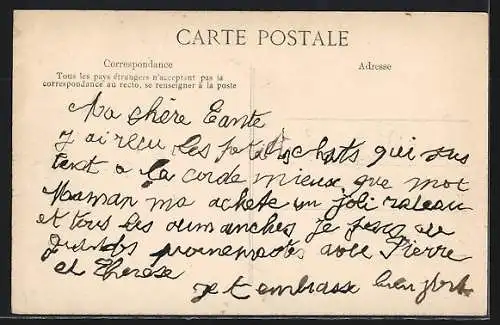 CARTE POSTALE
Correspondance
Tous les pays étrangers n'acceptent pas la
correspondance au recto, se renseigner à la poste
Adresse
Ma chère Tante
J ai reçu les petits chats qui sau
tent a la corde mieux que moi
Maman ma achete un joli rateau
et tous les dimanches je fais de
grandes promenades avec Pierre
et Therese
je t embrasse bien fort